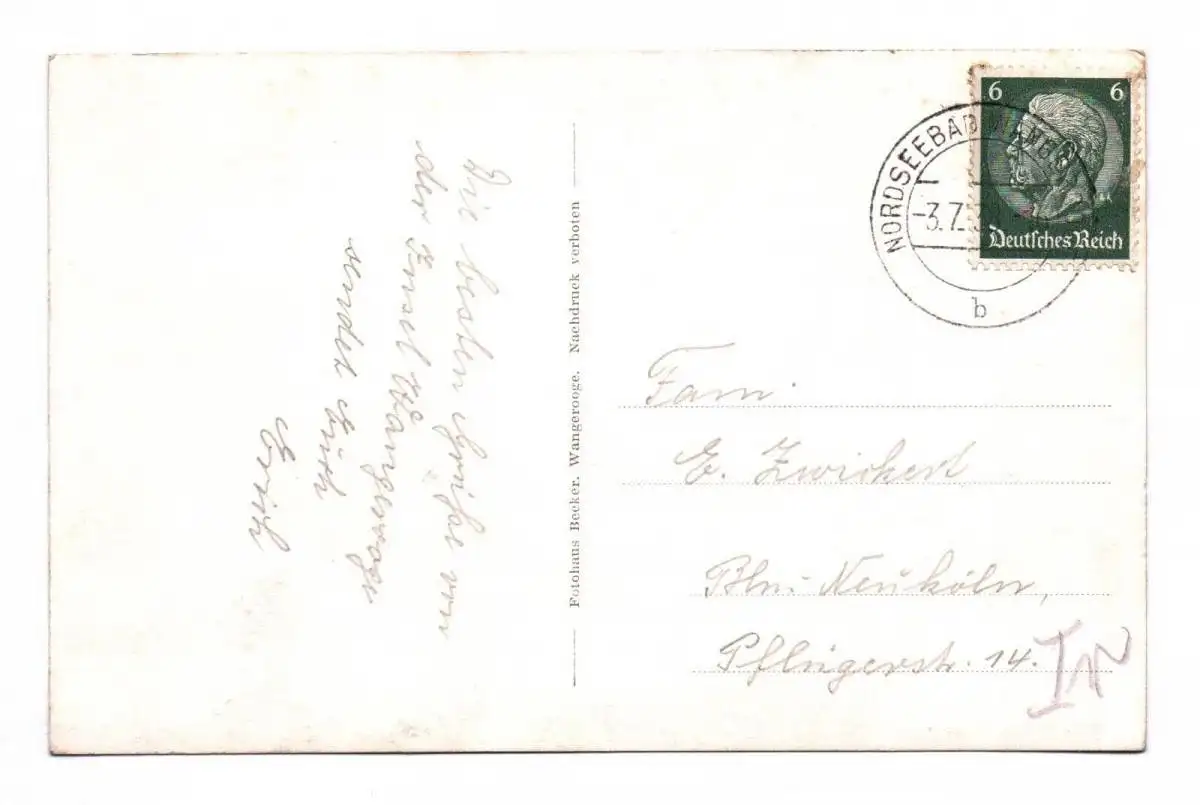 Die besten Grüße von
der Insel Wangerooge
sendet Euch
Erich
Fotohaus Becker. Wangerooge. Nachdruck verboten
6 6
Deutsches Reich
NORDSEEBAD WANGE
-3.7.3
b
Fam.
E. Zwickert
Bln.-Neuköln,
Pflügerstr. 14.